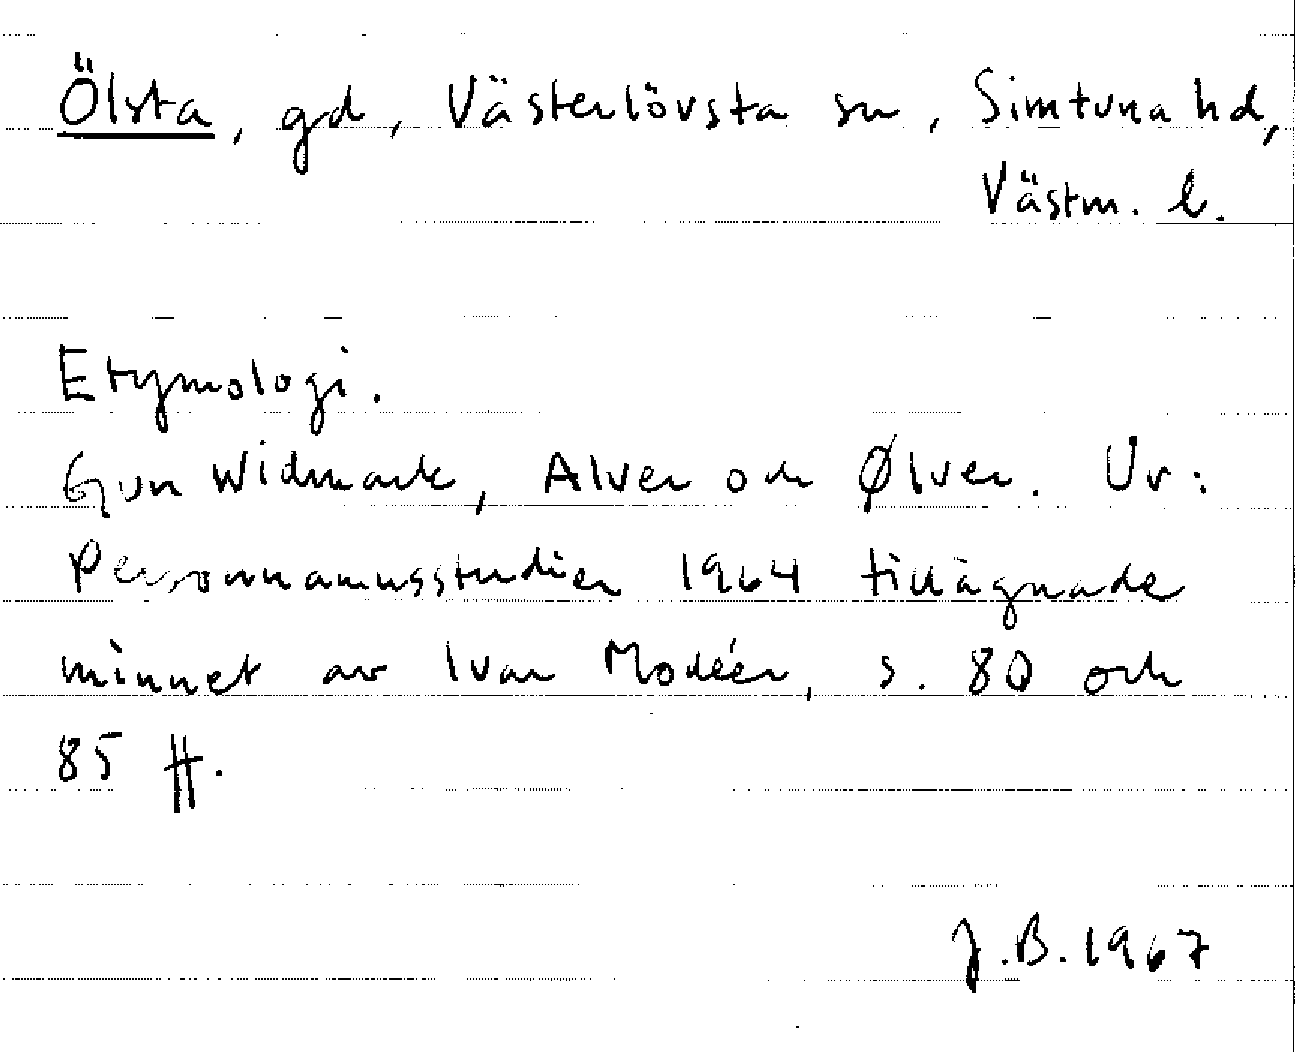 Ölsta, gd, Västerlövsta sn, Simtuna hd,
Västm. l.
Etymologi.
Gun Widmark, Alver och Ølver. Ur:
Personnamnsstudier 1964 tillägnade
minnet av Ivar Modéer, s. 80 och
85 ff.
J.B. 1967